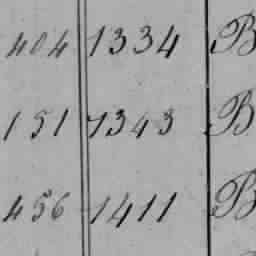 404 1334 B
151 1343 B
456 1411 B